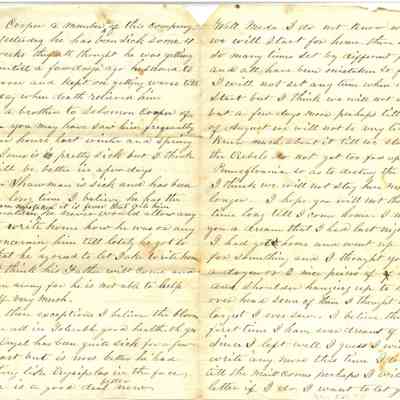 Cooper a member of this company
yesterday he has been sick some 4
weeks they thought he was getting
until a few days ago he
worse and kept on getting worse till
day when death relieved him
a brother to Solomon Cooper
you may have saw him frequently
house last winter and spring
is pretty sick but I think
will be better in a few days
Shawman is sick and has been
long time I believe he has the
he never would allow any
write home how he was or any
concerning him till lately he got so
that he agreed to let Jake write home
I think his Father will come and
him away for he is not able to help
self very much.
these exceptions I believe the
are all in Tolerable good health
has been quite sick for a few
past but is now better he had
like Erysipelas in the face,
is a good deal better now
Well Meda I do not know
we will start for home there
so many times set by different
and all have been mistaken so
I will not set any time when
start but I think we will not
but a few days more perhaps till
of August we will not be any
know much about it till we
the Rebels do not get too far up
Pennsylvania so as to destroy the
I think we will not stay here
longer. I hope you will not
time long till I come home. I
you a dream that I had last night
I had got home and went up
for something and I thought
2 nice pieces of
and shoulder hanging up to
over head some of them I thought
largest I ever saw. I believe
first time I have ever dreamt of
since I left well I guess I will
write any more this time
till the mail comes perhaps I will
letter if I do I want to let